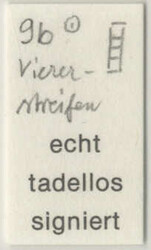 9b
Vierer-
streifen
echt
tadellos
signiert